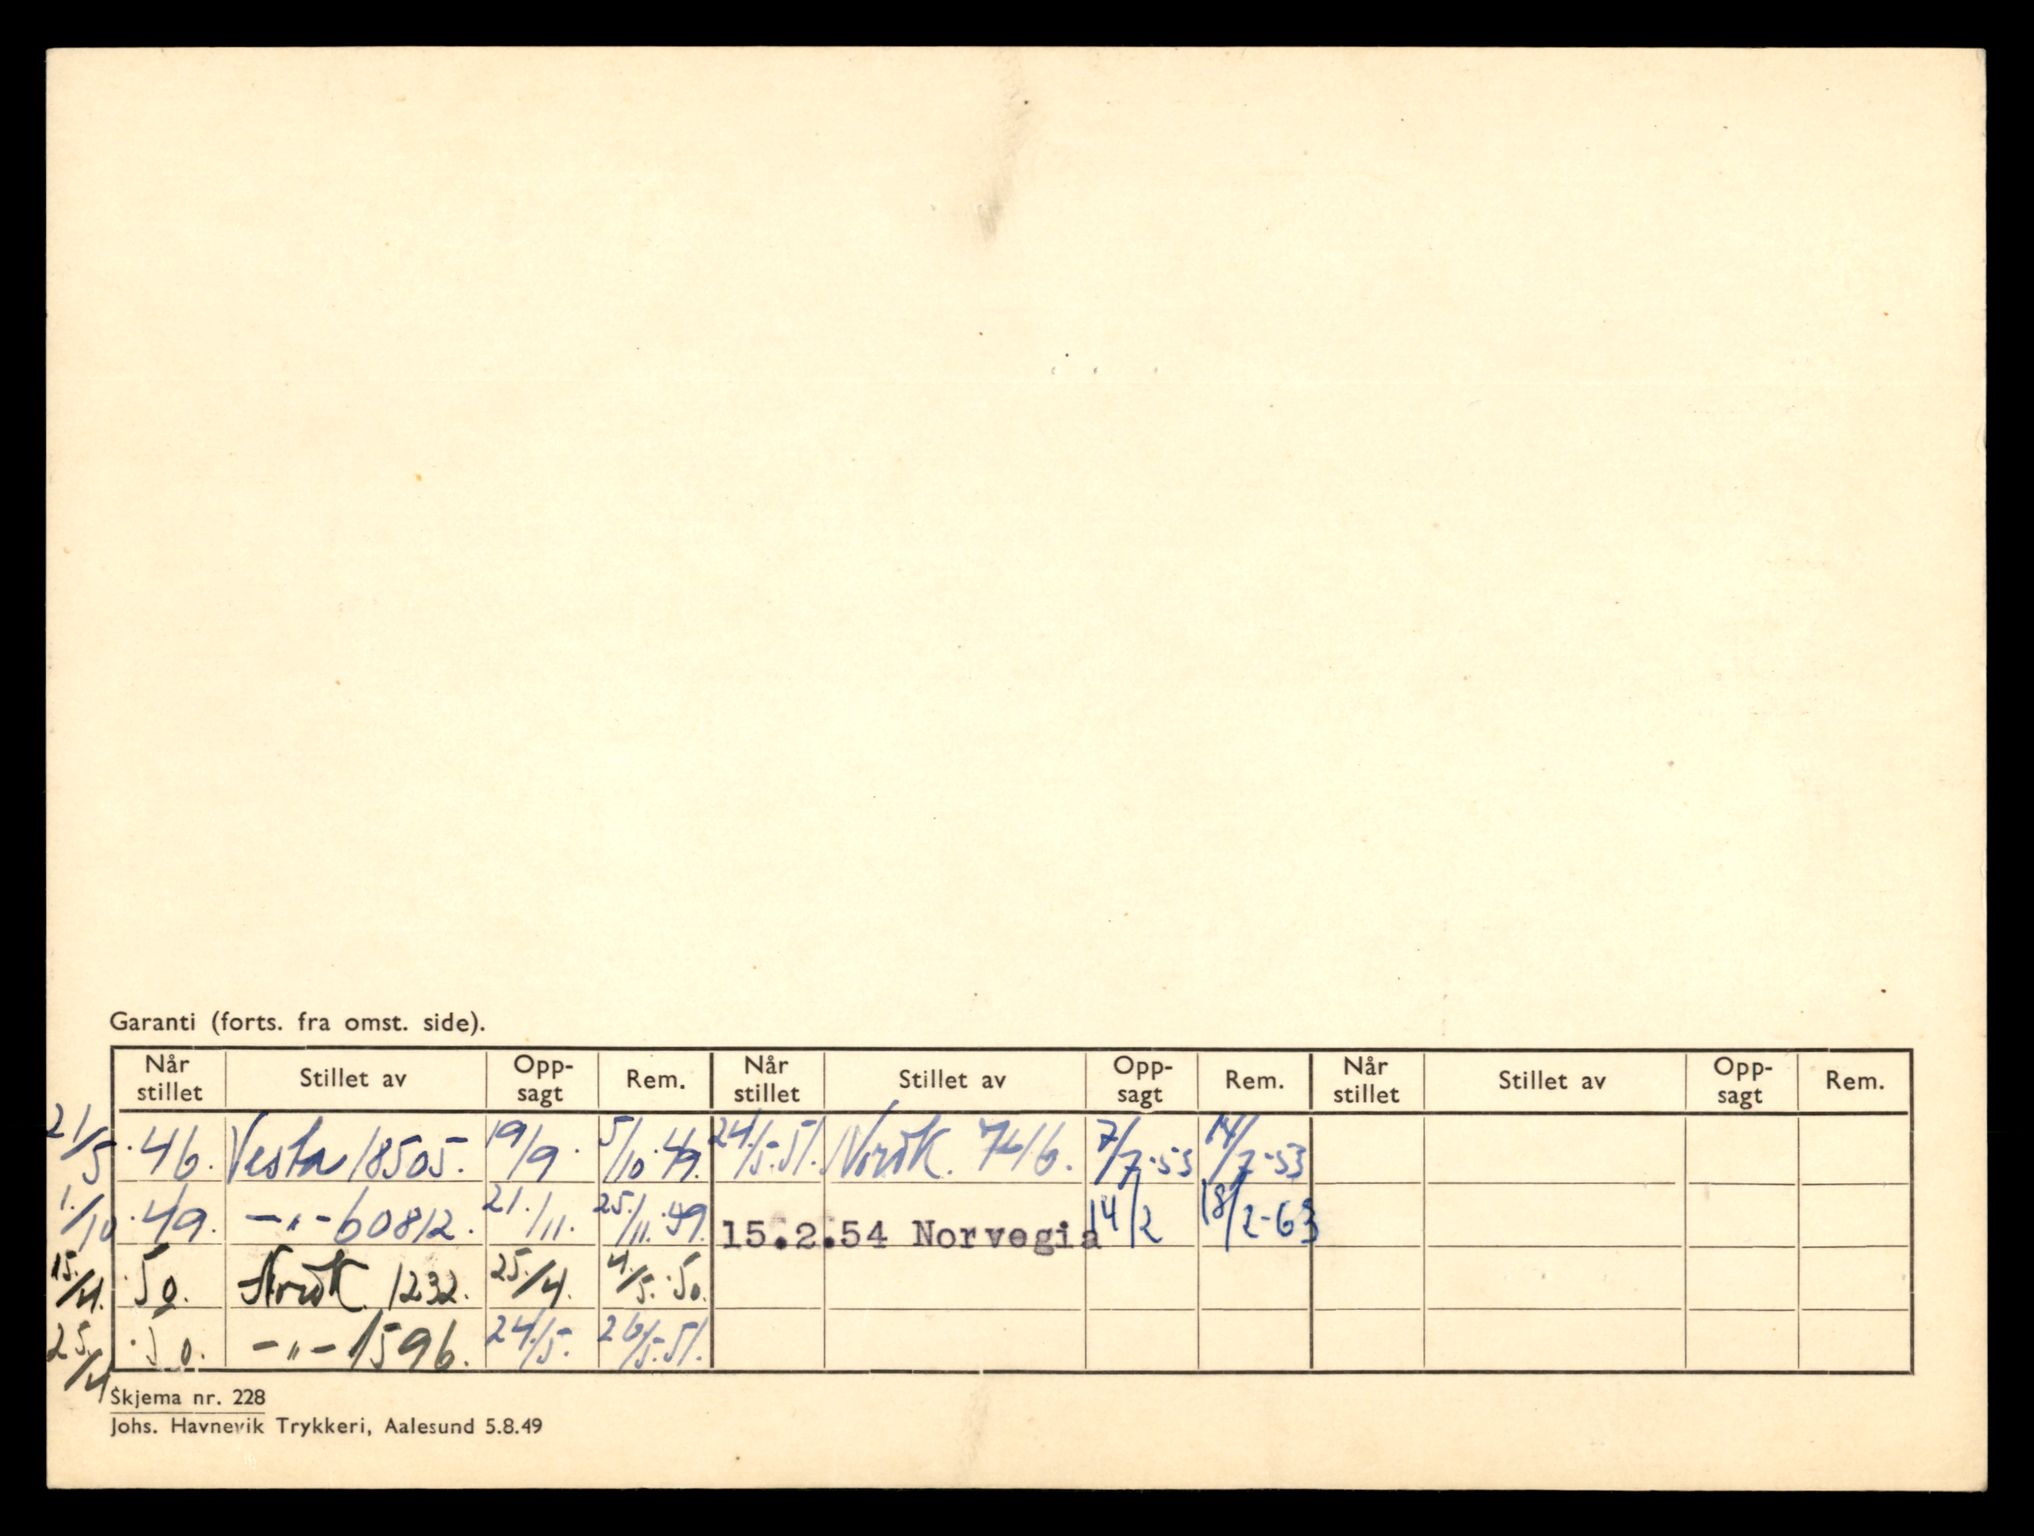 Garanti (forts. fra omst. side).
Når stillet Stillet av Opp-sagt Rem. Når stillet Stillet av Opp-sagt Rem. Når stillet Stillet av Opp-sagt Rem.
21/5 ·46. Vesta 18505. 19/9. 5/10·49. 24./5.51. 7/7·53 14/7-53
1./10 ·49. —„— 60812. 21./11. 25./11.49. 15.2.54 Norvegia 14/2 18/2-63
15./4. ·50. 1232. 25./4. 4./5.·50.
25./4 ·50. —„— 1596. 24./5. 26/5.51.
Skjema nr. 228
Johs. Havnevik Trykkeri, Aalesund 5.8.49